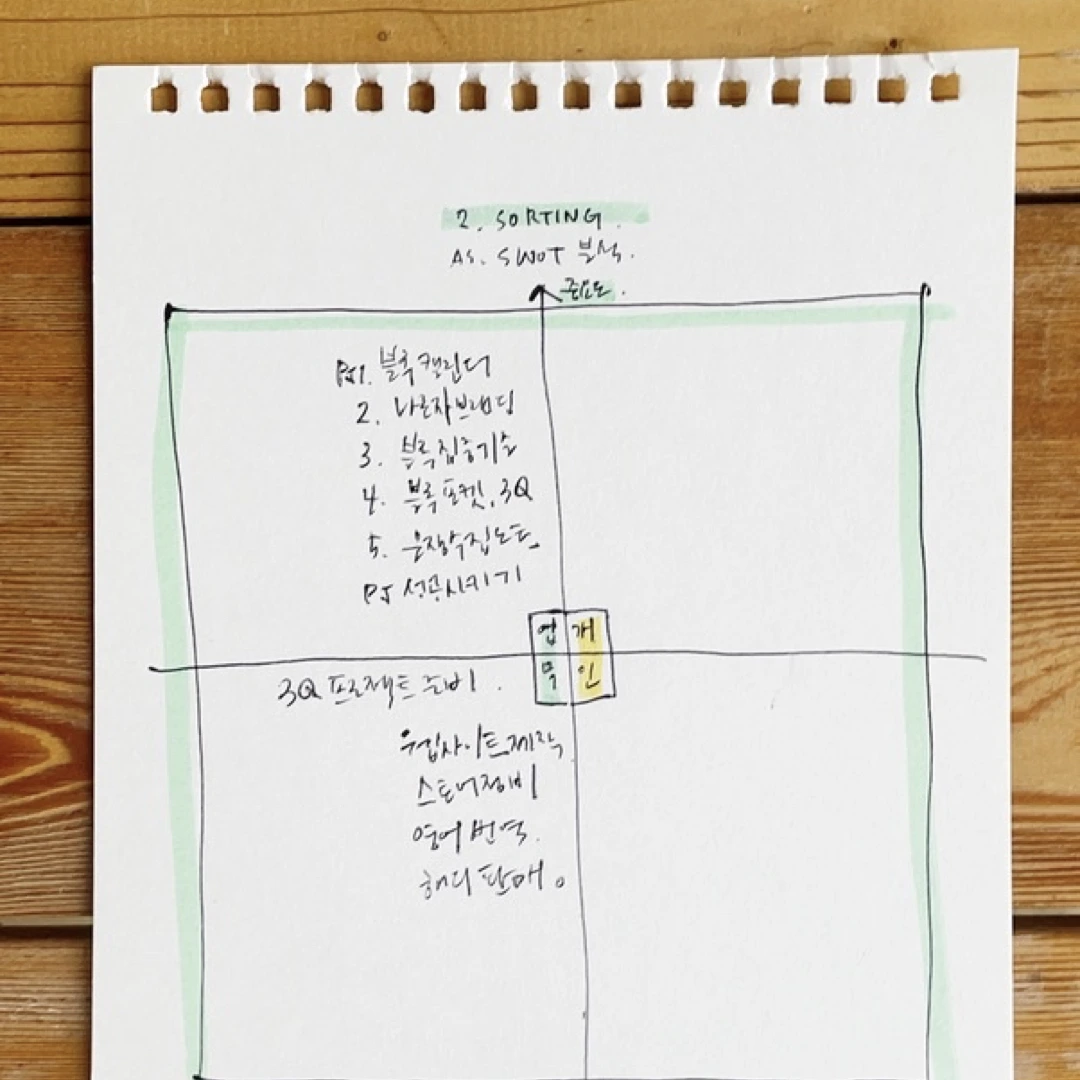 2. SORTING.
AS. SWOT 분석.
중요도.
PJ1. 블록캘린더
2. 나른자브랜딩
3. 블록집중기술
4. 블록포켓, 3Q
5. 문장수집노트
PJ 성공시키기
업 개
무 인
3Q 프로젝트 준비.
웹사이트제작
스토어정비
영어 번역.
해외 판매.